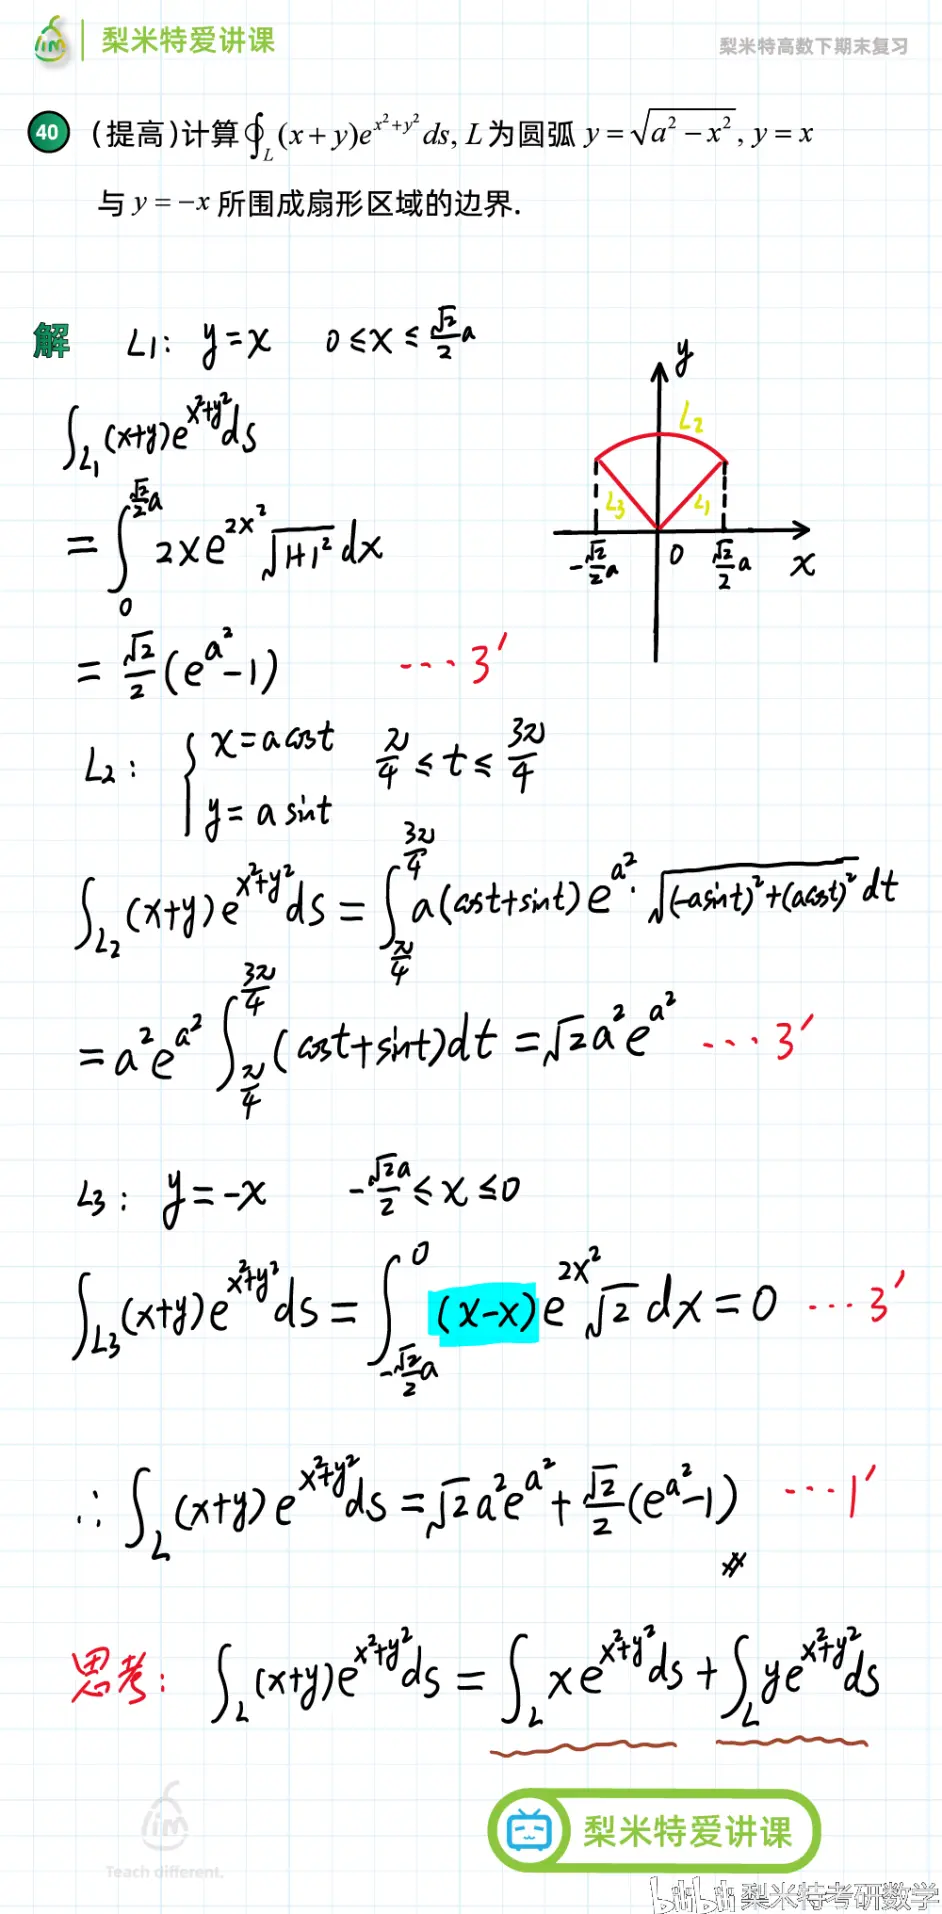 梨米特爱讲课
梨米特高数下期末复习
40 (提高)计算∮_L (x+y)e^{x²+y²} ds, L为圆弧 y=√(a²−x²), y=x
与 y=−x 所围成扇形区域的边界.
解 L1: y=x 0≤x≤√2/2 a
∫_{L1} (x+y)e^{x²+y²} ds
= ∫_0^{√2/2 a} 2xe^{2x²} √(1+1²) dx
= √2/2 (e^{a²}-1) ···3′
L2: { x=acost π/4 ≤ t ≤ 3π/4
y=a sint
∫_{L2} (x+y)e^{x²+y²} ds = ∫_{π/4}^{3π/4} a(cost+sint)e^{a²}·√((-asint)²+(acost)²) dt
= a²e^{a²} ∫_{π/4}^{3π/4} (cost+sint)dt = √2a²e^{a²} ···3′
L3: y=-x -√2a/2 ≤ x ≤ 0
∫_{L3} (x+y)e^{x²+y²} ds = ∫_{-√2/2 a}^0 (x-x)e^{2x²} √2 dx = 0 ···3′
∴ ∫_L (x+y)e^{x²+y²} ds = √2a²e^{a²} + √2/2 (e^{a²}-1) ···1′
#
思考: ∫_L (x+y)e^{x²+y²} ds = ∫_L xe^{x²+y²} ds + ∫_L ye^{x²+y²} ds
y
L2
L3
L1
-√2/2 a 0 √2/2 a x
lim
Teach different.
梨米特爱讲课
bilibili 梨米特考研数学